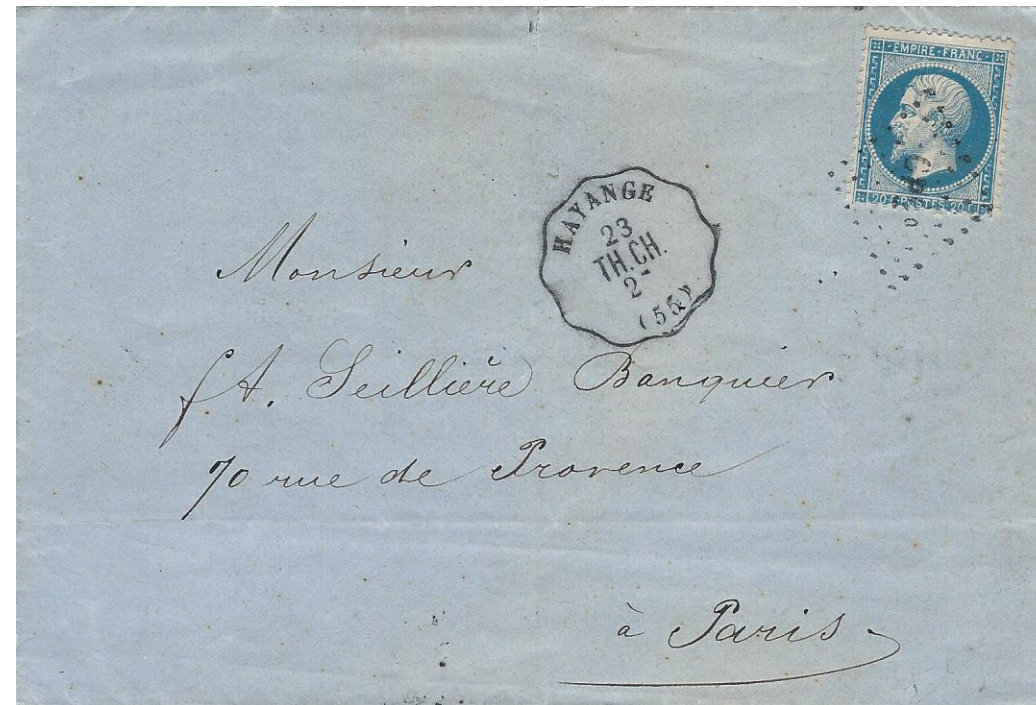 EMPIRE · FRANC ·
20 C POSTES 20 C
HAYANGE
23
TH.CH.
2
(55)
Monsieur
f A. Seillière Banquier
70 rue de Provence
à Paris